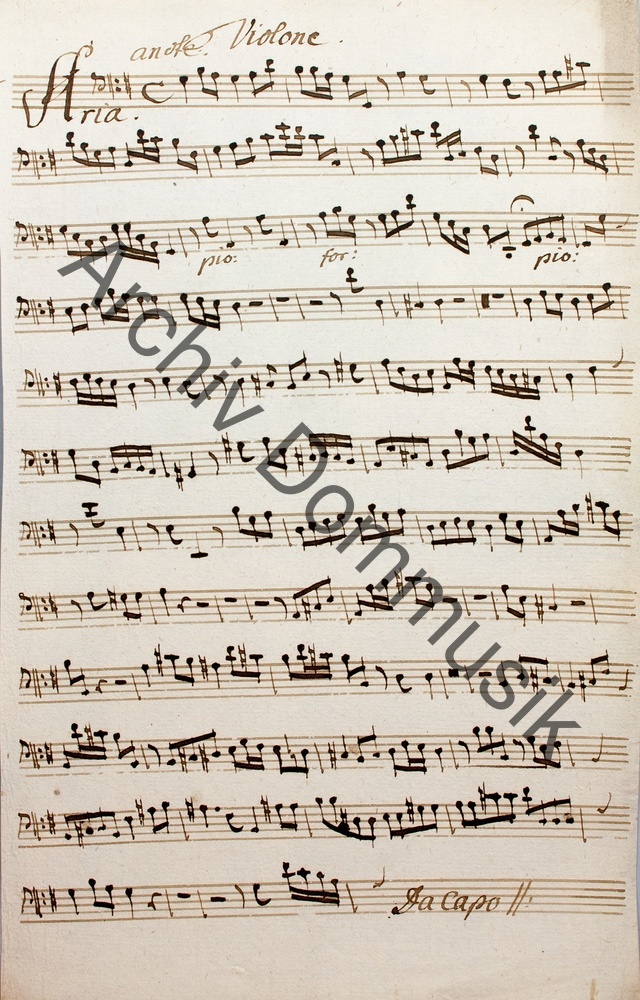 Violone.
Aria.
pio: for: pio:
Da Capo
Archiv Dommusik